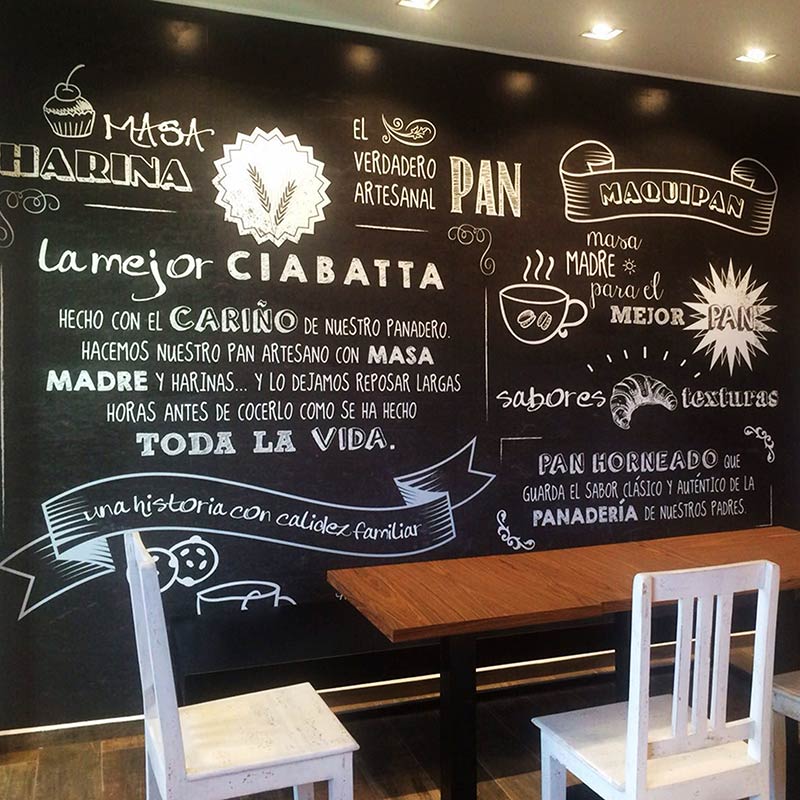 MASA
HARINA
EL
VERDADERO
ARTESANAL
PAN
MAQUIPAN
la mejor CIABATTA
HECHO CON EL CARIÑO DE NUESTRO PANADERO.
HACEMOS NUESTRO PAN ARTESANO CON MASA
MADRE Y HARINAS... Y LO DEJAMOS REPOSAR LARGAS
HORAS ANTES DE COCERLO COMO SE HA HECHO
TODA LA VIDA.
una historia con calidez familiar
masa
MADRE
para el
MEJOR PAN
sabores texturas
PAN HORNEADO QUE
GUARDA EL SABOR CLÁSICO Y AUTÉNTICO DE LA
PANADERÍA DE NUESTROS PADRES.